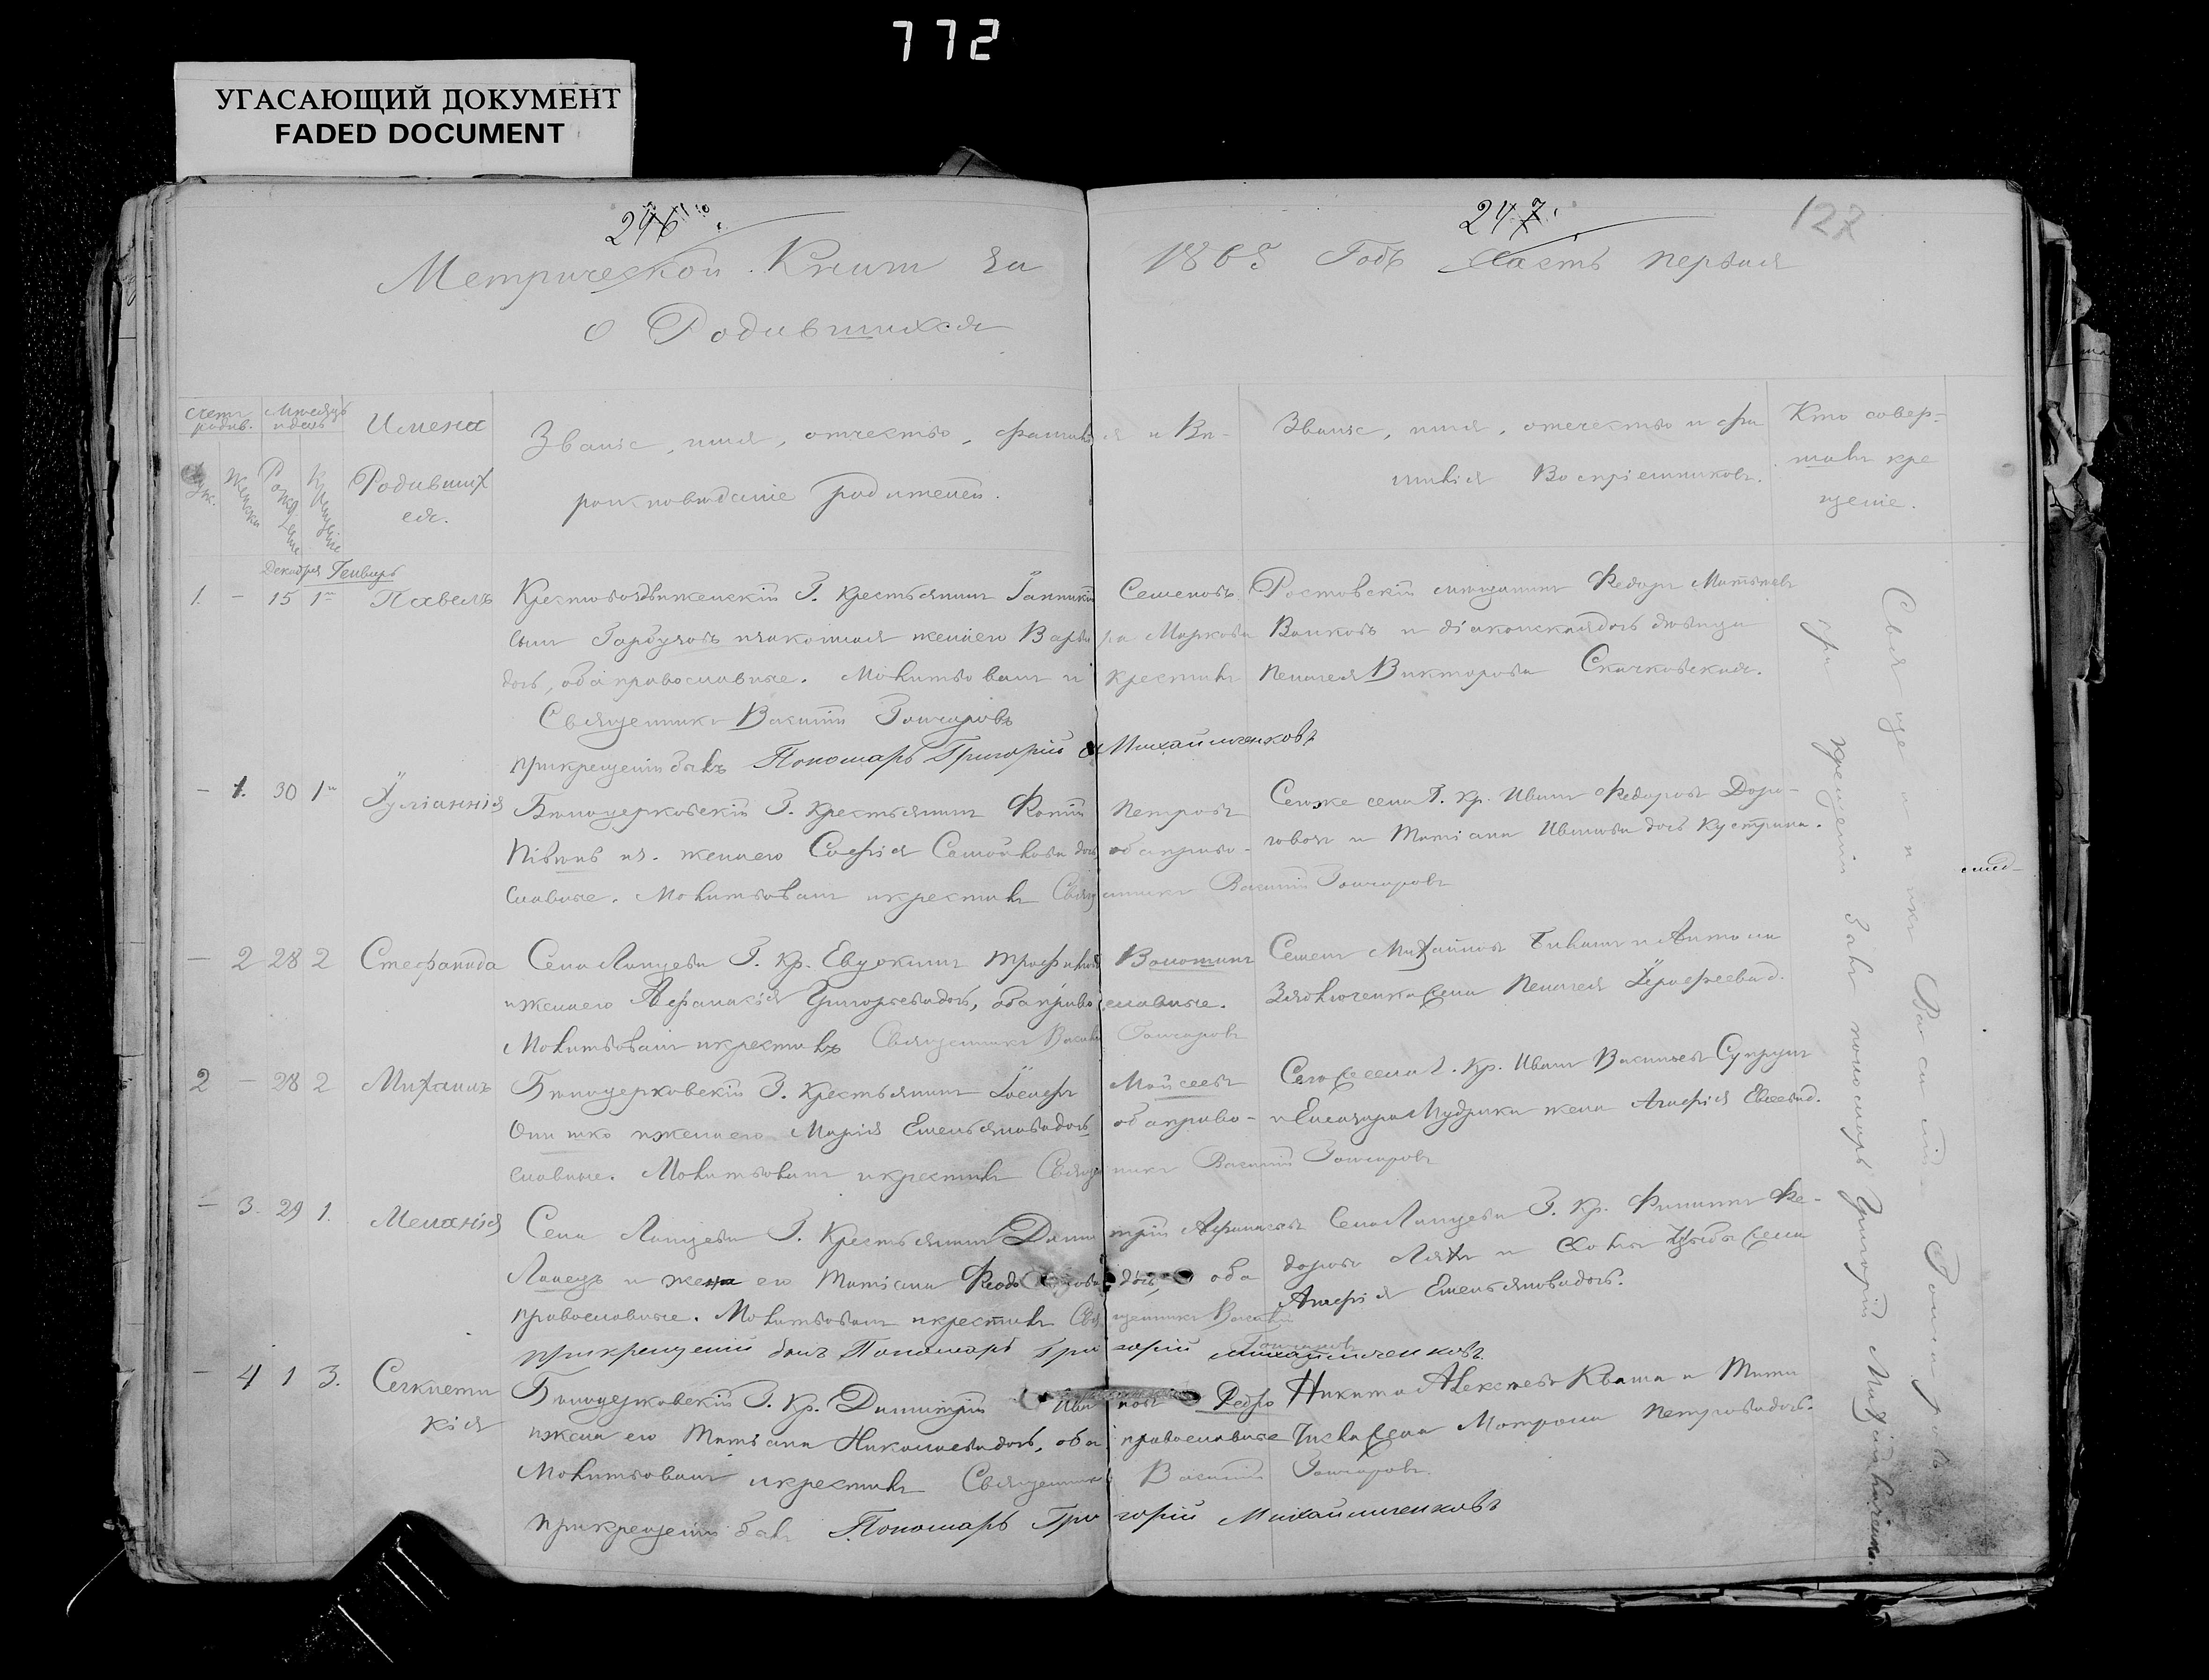 772
УГАСАЮЩИЙ ДОКУМЕНТ
FADED DOCUMENT
246
247
127
Метрической Книги за 186 Годъ часть первая
о Родившихся
счетъ родив.
Мѣсяцъ и день
Имена Родившихся.
Званіе, имя, отчество, фамилія и Вѣроисповѣданіе родителей.
Званіе, имя, отечество и фамилія Воспріемниковъ.
Кто совершалъ крещеніе.
Муж.
Женска
Рожденіе
Крещеніе
Декабря Генварь
1. - 15 1 Павелъ
Крестовоздвиженскій Г. Крестьянинъ Іанникій Семеновъ
сынъ Гарбузовъ изаконная жена его Варвара Маркова
дочь, оба православные. Молитвовалъ и крестилъ
Священникъ Василій Гончаровъ
при крещеніи былъ Пономарь Григорій Михайличенковъ
Ростовскій мѣщанинъ Федоръ Матвѣевъ
Волковъ и діаконская дочь дѣвица
Пелагея Викторова Скачковская.
- 1. 30 1 Іуліаннія
Бѣлоцерковскій Г. Крестьянинъ Фотій Петровъ
Півень из. жена его Софія Самойлова дочь оба право-
славные. Молитвовалъ и крестилъ Священникъ Василій Гончаровъ
Тогоже села Г. Кр. Иванъ Федоровъ Доро-
и Татіана Иванова дочь
- 2 28 2 Стефанида
Села Ланцева Г. Кр. Евдокимъ Трофимовъ Волошинъ
и жена его Афанасія Григорьева дочь, оба православные.
Молитвовалъ и крестилъ Священникъ Василій Гончаровъ
Семенъ Михайловъ и Антона
жена Пелагея Ерофеева д.
2 - 28 2 Михаилъ
Бѣлоцерковскій Г. Крестьянинъ Іосифъ Мойсеевъ
Онишко и жена его Марія Емельянова дочь оба право-
славные. Молитвовалъ и крестилъ Священникъ Василій Гончаровъ
Того же села Г. Кр. Иванъ Васильевъ Супрунъ
и Елеазара Мудрика жена Агафія Евсеева д.
- 3. 29 1. Меланія
Села Ланцева Г. Крестьянинъ Димитрій Афанасьевъ
Ланецъ и жена его Татіана дочь, оба
православные. Молитвовалъ и крестилъ Священникъ Василій Гончаровъ
при крещеніи былъ Пономарь Григорій Михайличенковъ
Села Ланцева Г. Кр. Филиппъ Фе-
доровъ Ляхъ и Цыбы жена
Агафія Емельянова дочь.
- 4 1 3.
Бѣлоцерковскій Г. Кр. Димитрій Ивановъ Редко
и жена его Татьяна Николаева дочь, оба православные
Молитвовалъ и крестилъ Священникъ Василій Гончаровъ
при крещеніи былъ Пономарь Григорій Михайличенковъ
Никита Алексѣевъ Кваша и
жена Матрона Петрова дочь.
Священникъ Василій Гончаровъ
при крещеніи былъ пономарь Григорій Михайличенко.